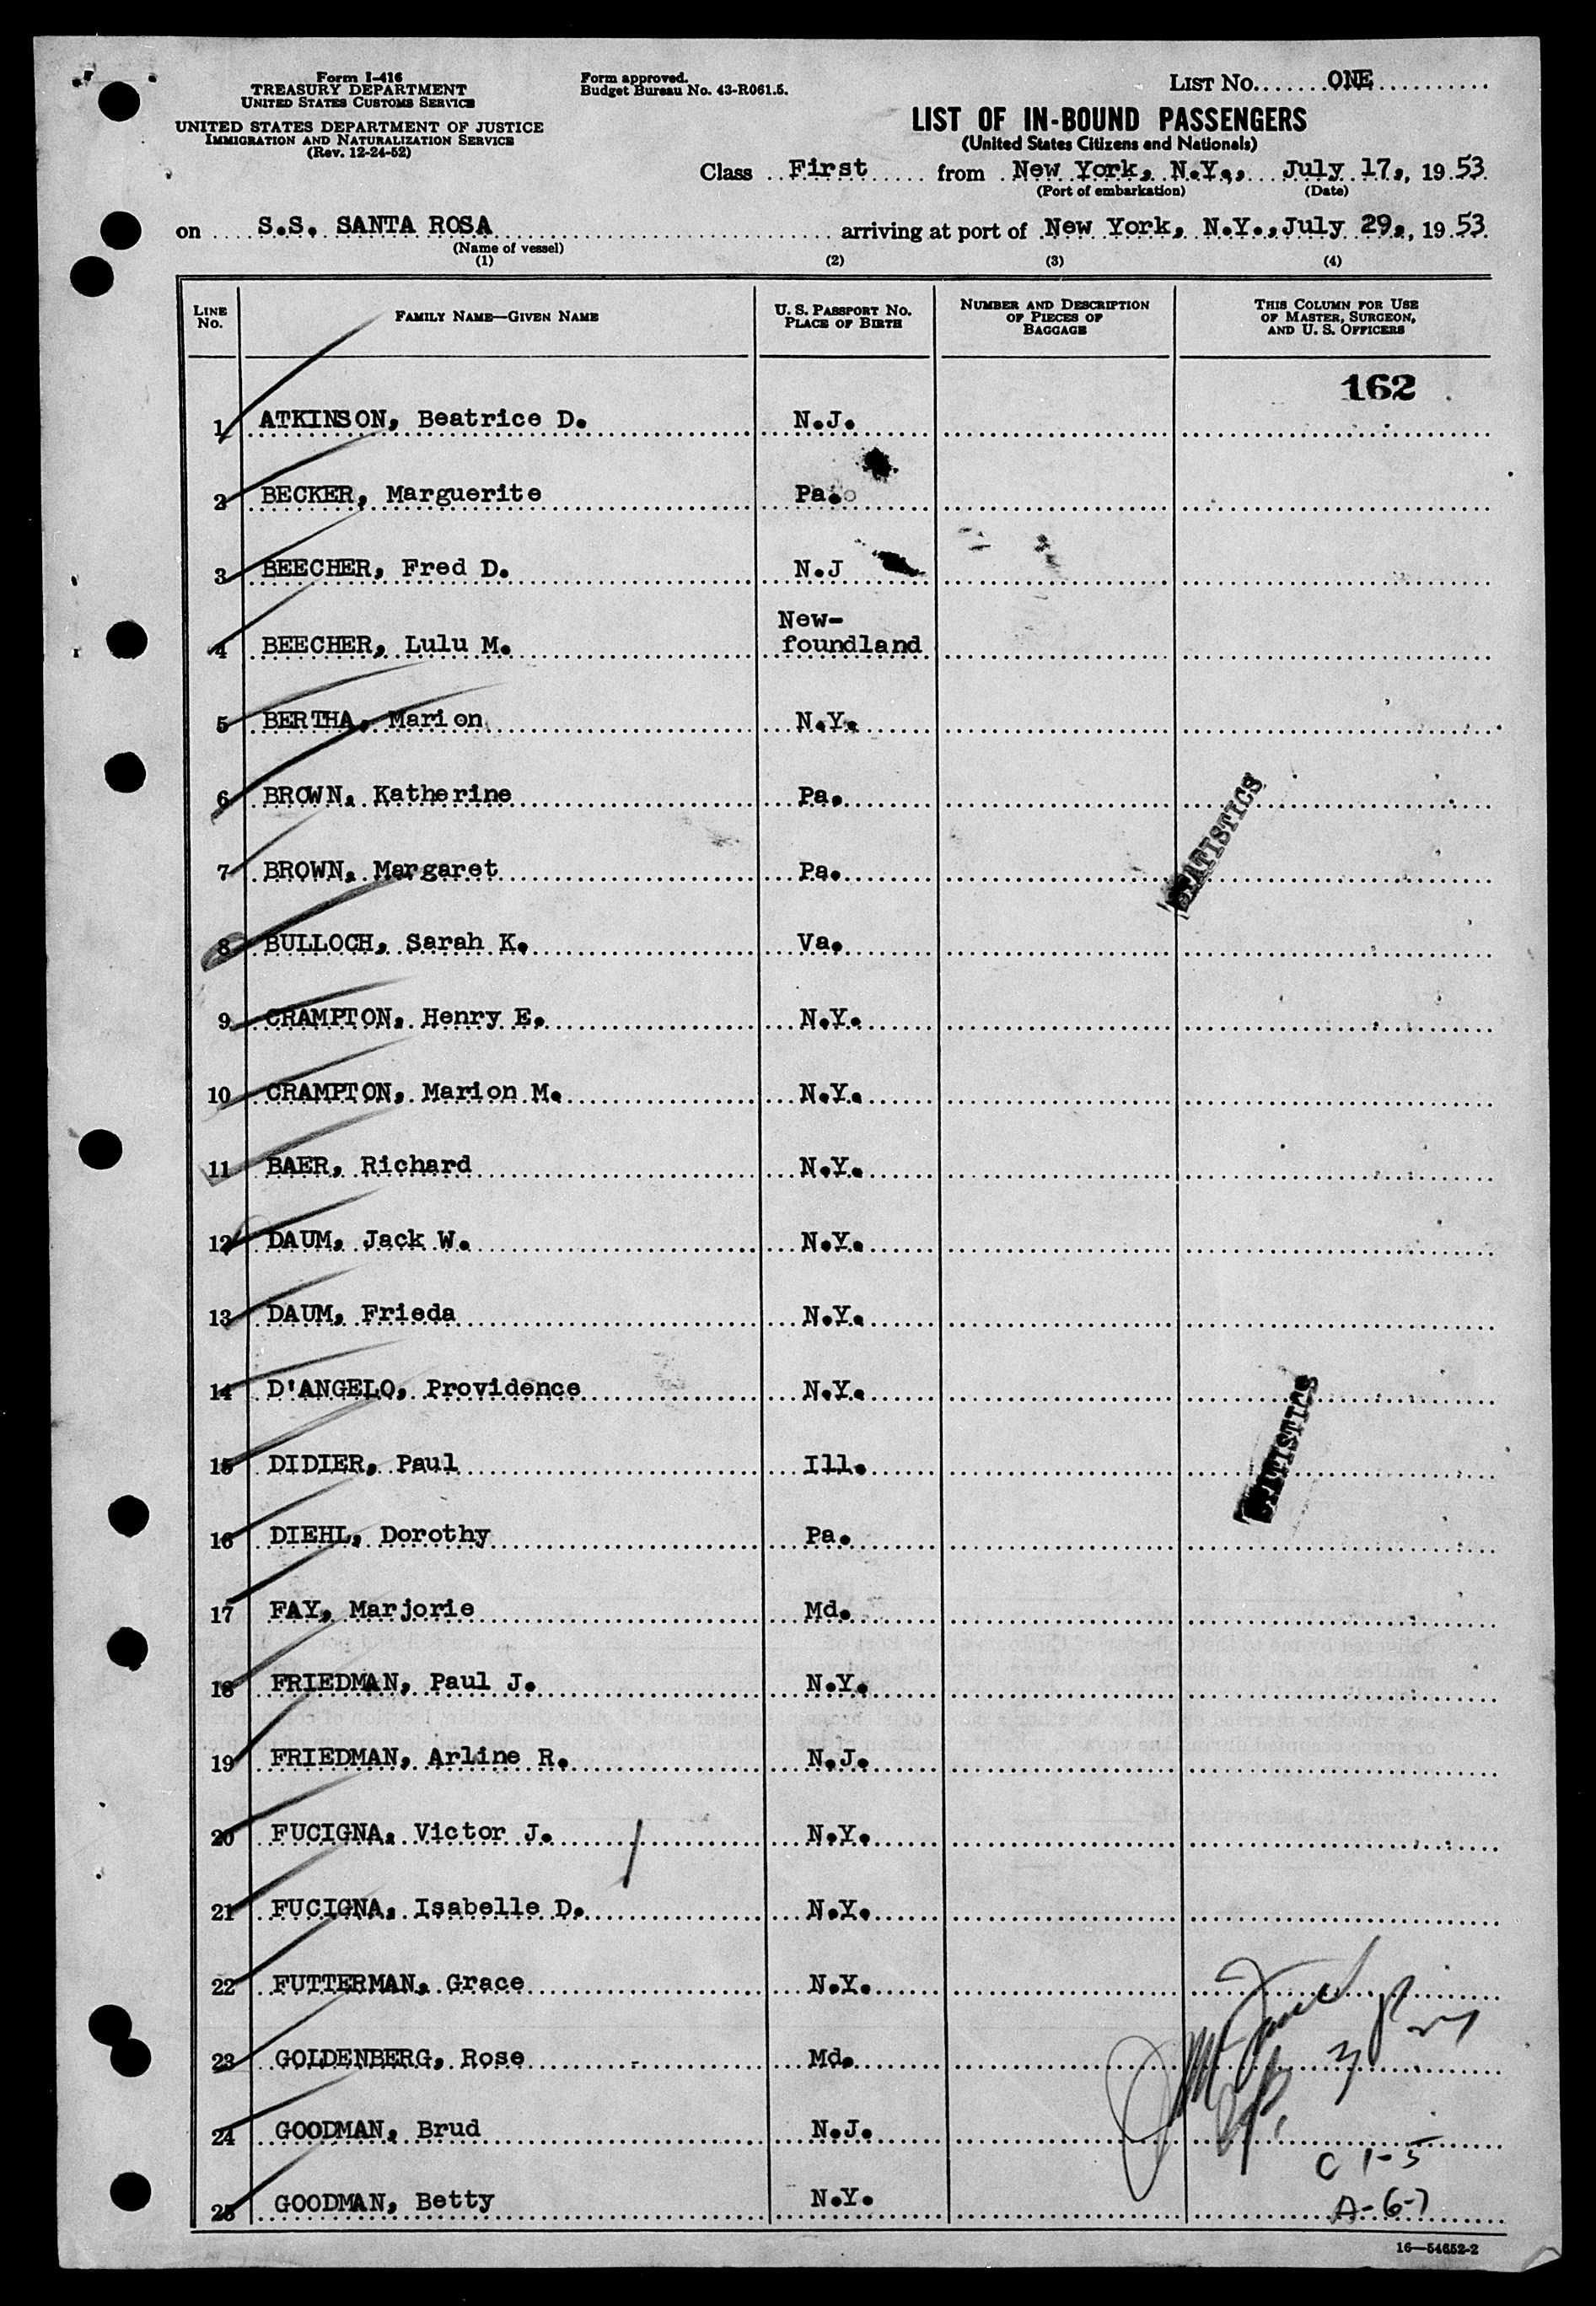 Form I-416
TREASURY DEPARTMENT
UNITED STATES CUSTOMS SERVICE
UNITED STATES DEPARTMENT OF JUSTICE
IMMIGRATION AND NATURALIZATION SERVICE
(Rev. 12-24-52)
Form approved.
Budget Bureau No. 43-R061.5.
LIST No. ONE
LIST OF IN-BOUND PASSENGERS
(United States Citizens and Nationals)
Class First from New York, N.Y., July 17, 1953
(Port of embarkation) (Date)
on S.S. SANTA ROSA arriving at port of New York, N.Y., July 29, 1953
(Name of vessel)
(1) (2) (3) (4)
LINE No. FAMILY NAME—GIVEN NAME U. S. PASSPORT No. PLACE OF BIRTH NUMBER AND DESCRIPTION OF PIECES OF BAGGAGE THIS COLUMN FOR USE OF MASTER, SURGEON, AND U. S. OFFICERS
162
1 ATKINSON, Beatrice D. N.J.
2 BECKER, Marguerite Pa.
3 BEECHER, Fred D. N.J
4 BEECHER, Lulu M. New-
foundland
5 BERTHA, Marion N.Y.
6 BROWN, Katherine Pa.
7 BROWN, Margaret Pa.
STATISTICS
8 BULLOCH, Sarah K. Va.
9 CRAMPTON, Henry E. N.Y.
10 CRAMPTON, Marion M. N.Y.
11 BAER, Richard N.Y.
12 DAUM, Jack W. N.Y.
13 DAUM, Frieda N.Y.
14 D'ANGELO, Providence N.Y.
STATISTICS
15 DIDIER, Paul Ill.
16 DIEHL, Dorothy Pa.
17 FAY, Marjorie Md.
18 FRIEDMAN, Paul J. N.Y.
19 FRIEDMAN, Arline R. N.J.
20 FUCIGNA, Victor J. N.Y.
21 FUCIGNA, Isabelle D. N.Y.
22 FUTTERMAN, Grace N.Y.
23 GOLDENBERG, Rose Md.
24 GOODMAN, Brud N.J.
C 1-5
25 GOODMAN, Betty N.Y.
A-6-7
16—54652-2